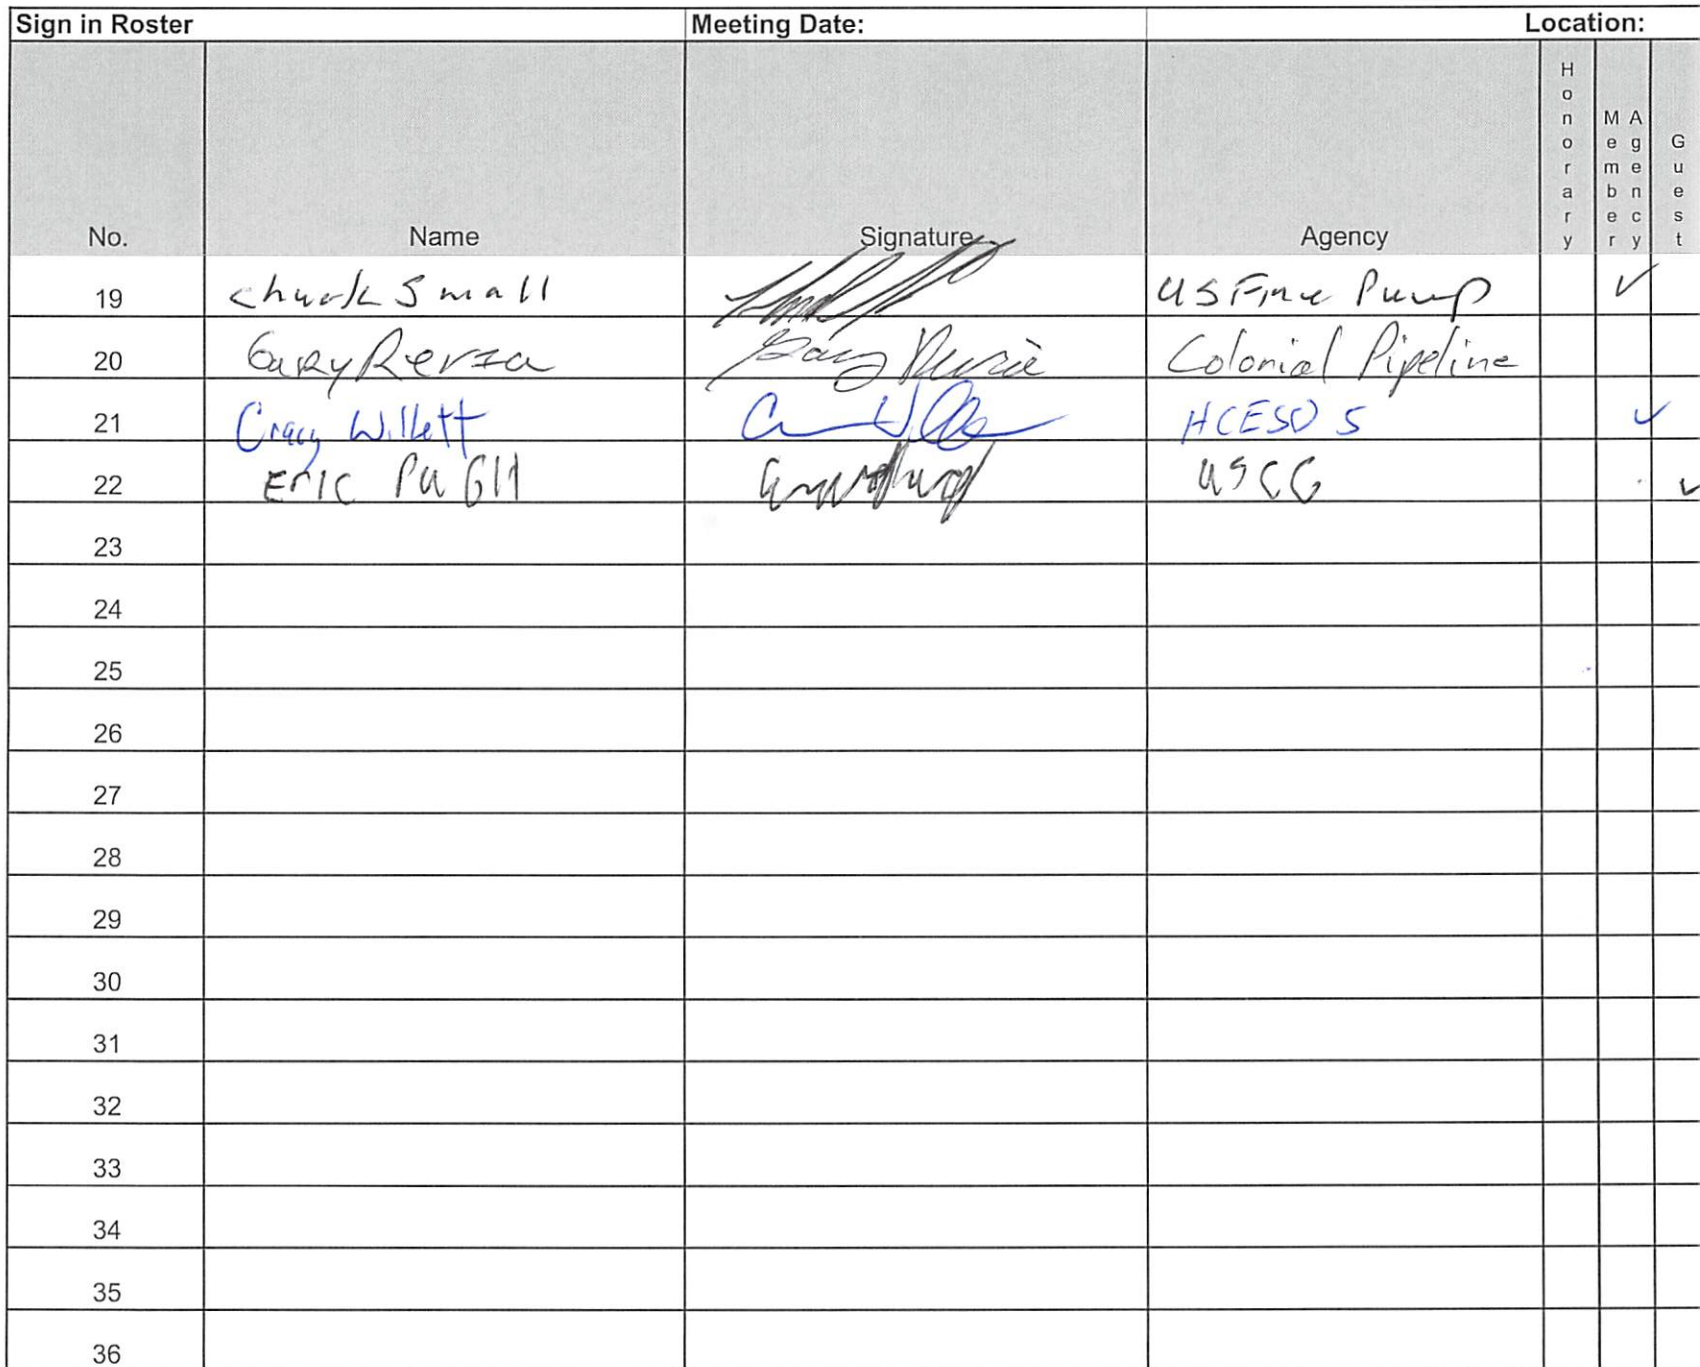 Sign in Roster Meeting Date: Location:
No. Name Signature Agency Honorary Member Agency Guest
19 Chuck Small US Fire Pump ✓
20 Gary Colonial Pipeline
21 Craig Willett HCESD 5 ✓
22 Eric PUGH USCG ✓
23
24
25
26
27
28
29
30
31
32
33
34
35
36